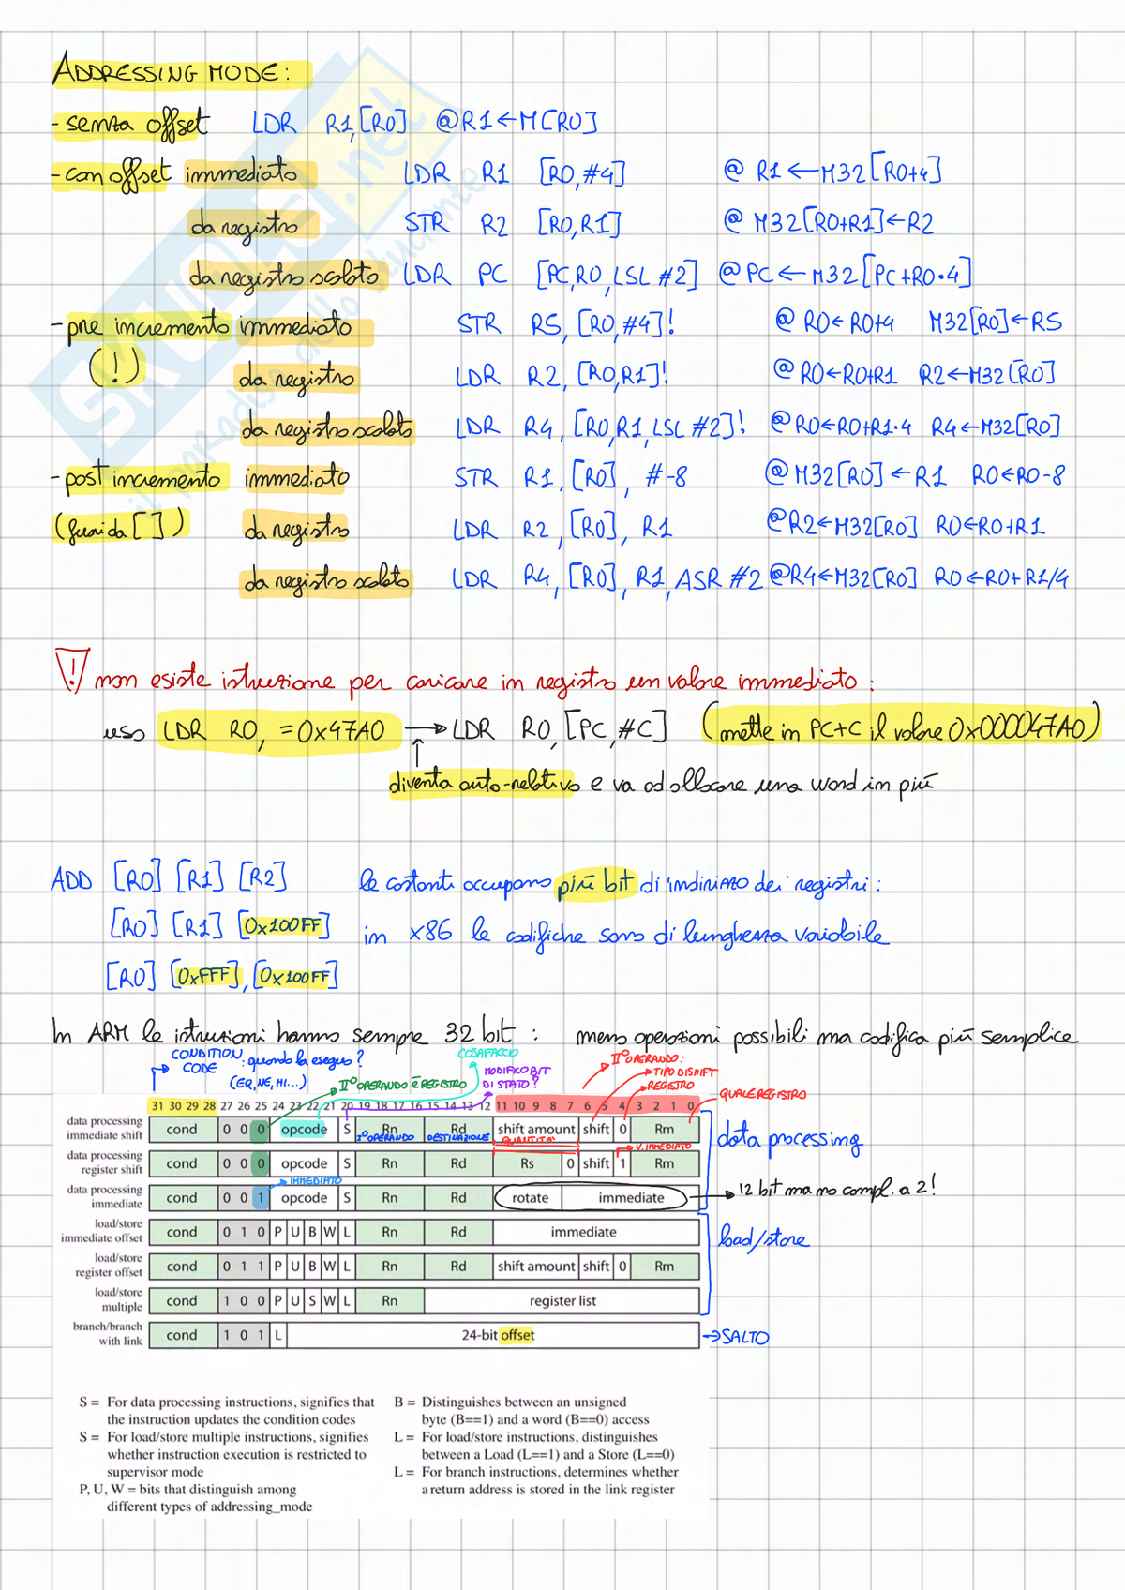 ADDRESSING MODE:
- senza offset LDR R1,[R0] @R1←M[R0]
- con offset immediato LDR R1 [R0,#4] @ R1←M32[R0+4]
da registro STR R2 [R0,R1] @ M32[R0+R1]←R2
da registro scalato LDR PC [PC,R0,LSL #2] @PC←M32[PC+R0·4]
- pre incremento immediato STR R5, [R0,#4]! @ R0←R0+4 M32[R0]←R5
(!) da registro LDR R2, [R0,R1]! @ R0←R0+R1 R2←M32[R0]
da registro scalato LDR R4, [R0,R1,LSL #2]! @R0←R0+R1·4 R4←M32[R0]
- post incremento immediato STR R1, [R0], #-8 @M32[R0]←R1 R0←R0-8
(fuori da []) da registro LDR R2, [R0], R1 @R2←M32[R0] R0←R0+R1
da registro scalato LDR R4, [R0], R1, ASR #2 @R4←M32[R0] R0←R0+R1/4
! non esiste istruzione per caricare in registro un valore immediato:
uso LDR R0, =0x47A0 → LDR R0,[PC,#C] (mette in PC+C il valore 0x000047A0)
diventa auto-relativo e va ad allocare una word in più
ADD [R0] [R1] [R2] le costanti occupano più bit di indirizzo dei registri:
[R0] [R1] [0x100FF] in x86 le codifiche sono di lunghezza variabile
[R0] [0xFFF],[0x100FF]
In ARM le istruzioni hanno sempre 32 bit: meno operazioni possibili ma codifica più semplice
CONDITION CODE: quando la eseguo?
(EQ, NE, HI...)
II° OPERANDO È REGISTRO
COSA FACCIO
MODIFICO BIT DI STATO?
II° OPERANDO:
TIPO DI SHIFT
REGISTRO
QUALE REGISTRO
31 30 29 28 27 26 25 24 23 22 21 20 19 18 17 16 15 14 13 12 11 10 9 8 7 6 5 4 3 2 1 0
data processing immediate shift cond 0 0 0 opcode S Rn Rd shift amount shift 0 Rm
I° OPERANDO DESTINAZIONE QUANTITÀ V. IMMEDIATO
data processing
data processing register shift cond 0 0 0 opcode S Rn Rd Rs 0 shift 1 Rm
IMMEDIATO
data processing immediate cond 0 0 1 opcode S Rn Rd rotate immediate → 12 bit ma no compl. a 2!
load/store immediate offset cond 0 1 0 P U B W L Rn Rd immediate
load/store
load/store register offset cond 0 1 1 P U B W L Rn Rd shift amount shift 0 Rm
load/store multiple cond 1 0 0 P U S W L Rn register list
branch/branch with link cond 1 0 1 L 24-bit offset → SALTO
S = For data processing instructions, signifies that
the instruction updates the condition codes
S = For load/store multiple instructions, signifies
whether instruction execution is restricted to
supervisor mode
P, U, W = bits that distinguish among
different types of addressing_mode
B = Distinguishes between an unsigned
byte (B==1) and a word (B==0) access
L = For load/store instructions, distinguishes
between a Load (L==1) and a Store (L==0)
L = For branch instructions, determines whether
a return address is stored in the link register